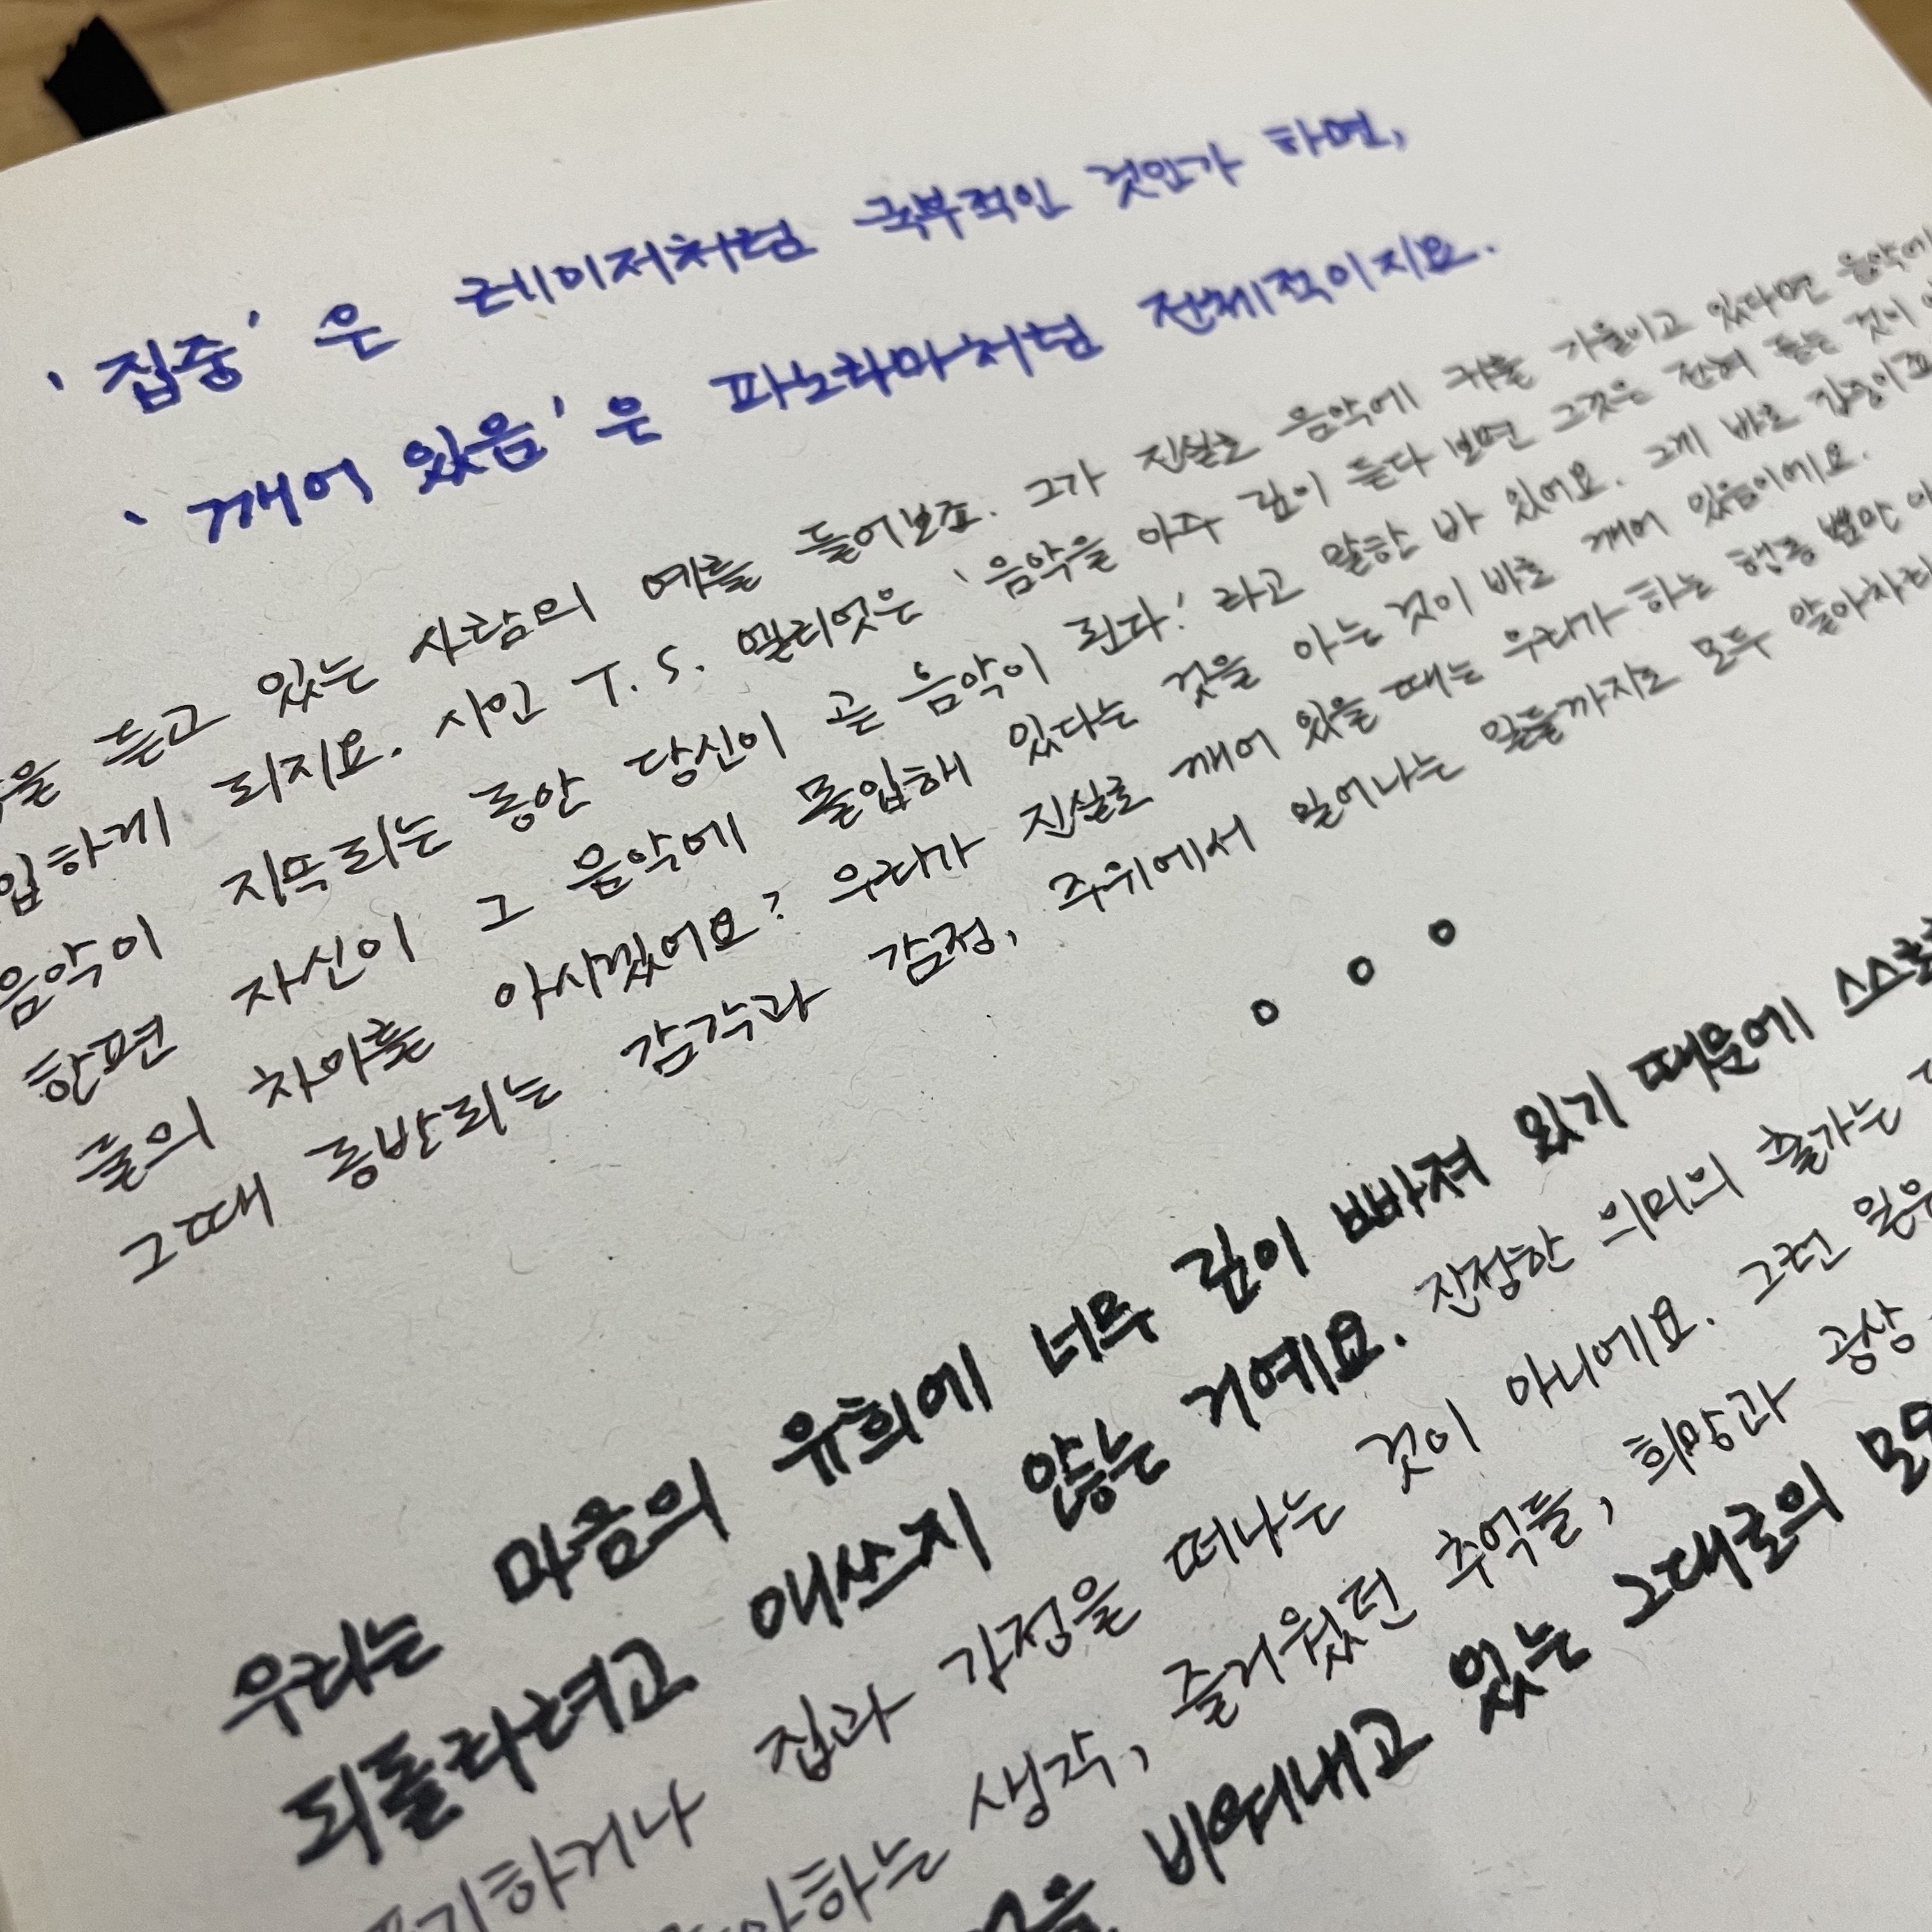 '집중'은 레이저처럼 국부적인 것인가 하면,
'깨어 있음'은 파노라마처럼 전체적이지요.
을 듣고 있는 사람의 예를 들어보죠. 그가 진실로 음악에 귀를 기울이고 있다면 음악에
입하게 되지요. 시인 T. S. 엘리엇은 '음악을 아주 깊이 듣다 보면 그것은 전혀 듣는 것이
음악이 지속되는 동안 당신이 곧 음악이 된다.' 라고 말한 바 있어요. 그게 바로 집중이죠
한편 자신이 그 음악에 몰입해 있다는 것을 아는 것이 바로 깨어 있음이에요.
둘의 차이를 아시겠어요? 우리가 진실로 깨어 있을 때는 우리가 하는 행동 뿐만 아
그때 동반되는 감각과 감정, 주위에서 일어나는 일들까지도 모두 알아차리
우리는 마음의 유희에 너무 깊이 빠져 있기 때문에 스스로
되돌리려고 애쓰지 않는 거예요. 진정한 의미의 출가는
하거나 집과 가정을 떠나는 것이 아니에요. 그런 일은
하는 생각, 즐거웠던 추억들, 희망과 공상
비워내고 있는 그대로의 모